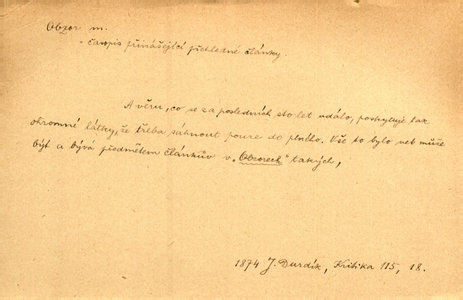 Obzor m.
- časopis přinášející přehledné články.
A věru, co se za posledních sto let událo, poskytuje tak
ohromné látky, že třeba sáhnout pouze do plného. Vše to bylo neb může
být a bývá předmětem článkův v „Obzorech" takých,
1874 J. Durdík, Kritika 115, 18.